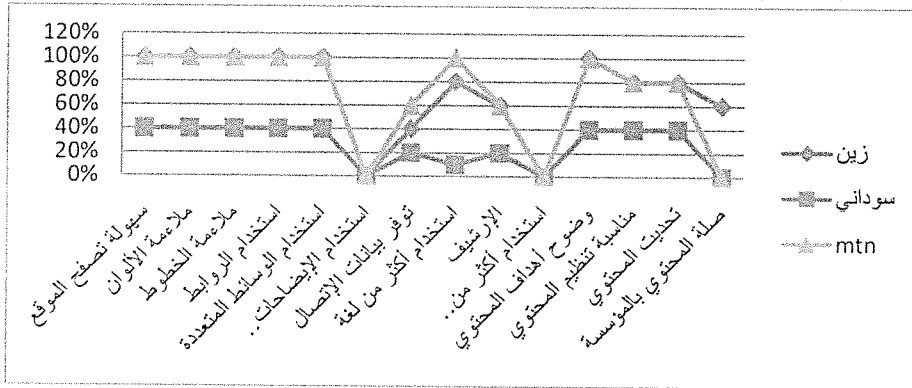 120%
100%
80%
60%
40%
20%
0%
سهولة تصفح الموقع
ملاءمة الألوان
ملاءمة الخطوط
استخدام الروابط
استخدام الوسائط المتعددة
استخدام الإيضاحات..
توفر بيانات الإتصال
استخدام أكثر من لغة
الإرشيف
استخدام أكثر من..
وضوح أهداف المحتوي
مناسبة تنظيم المحتوي
تحديث المحتوي
صلة المحتوي بالمؤسسة
زين
سوداني
mtn